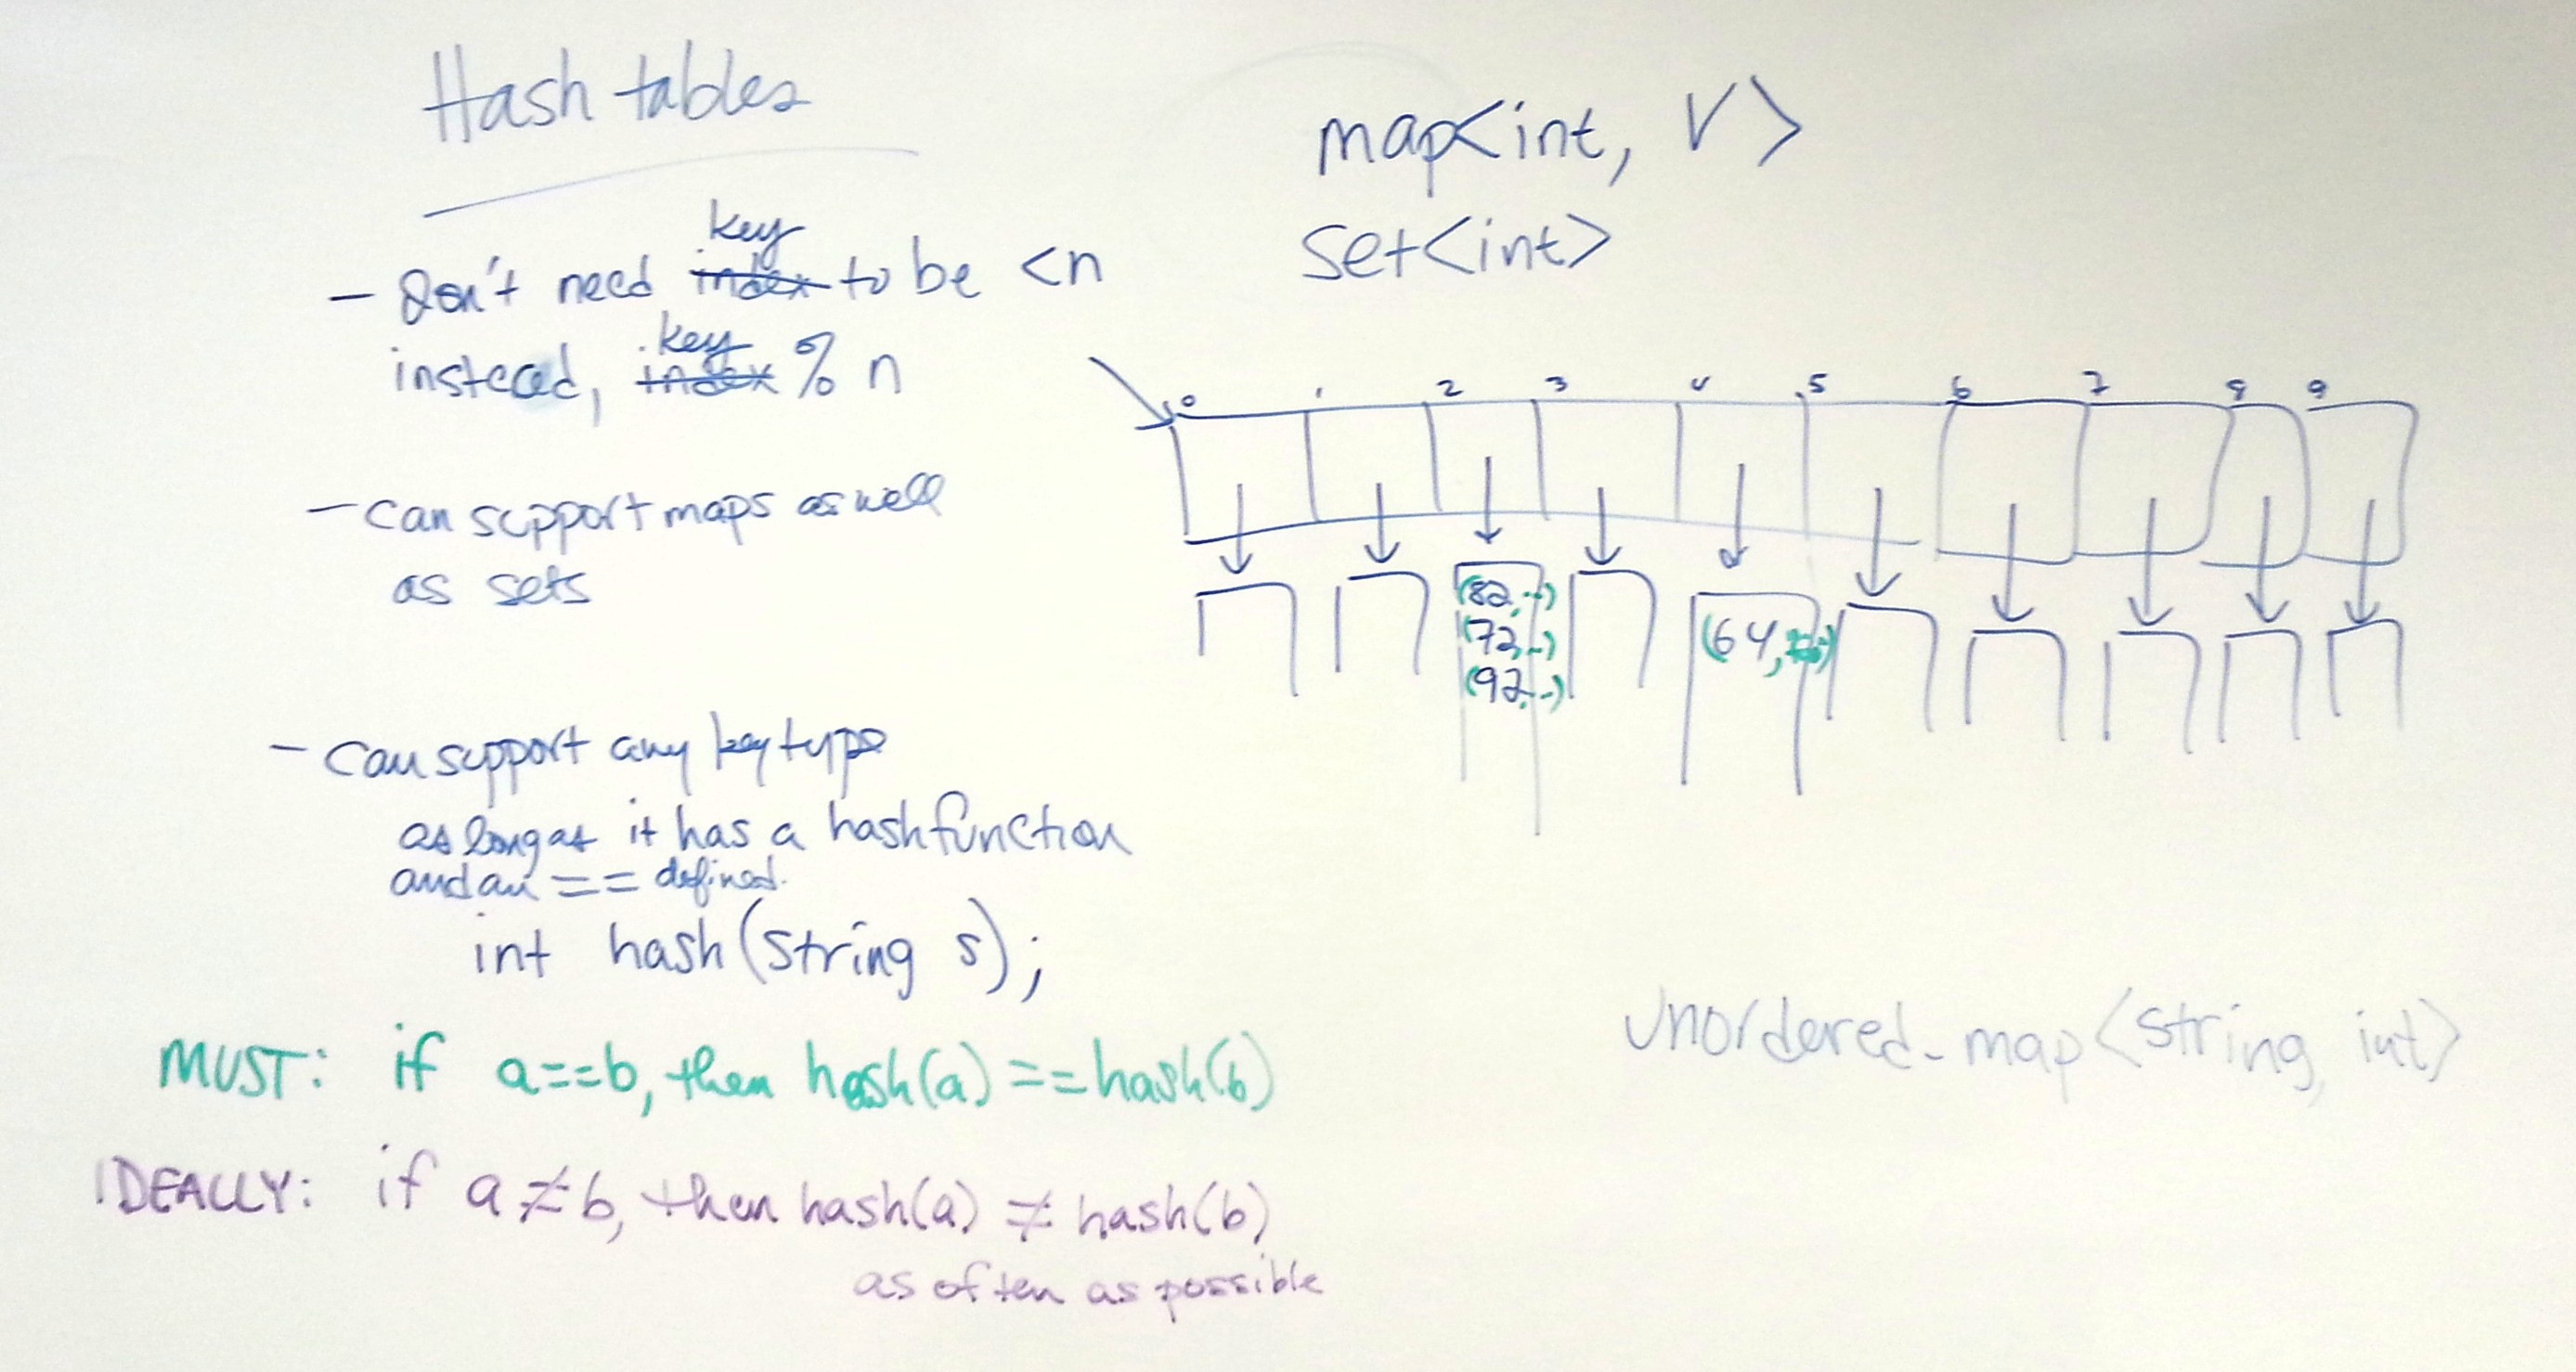 Hash tables
- Don't need index key to be <n
instead, index key % n
- can support maps as well
as sets
- can support any key type
as long as it has a hash function
and an == defined.
int hash(string s);
MUST: if a==b, then hash(a) == hash(b)
IDEALLY: if a ≠ b, then hash(a) ≠ hash(b)
as often as possible
map<int, V>
set<int>
0 1 2 3 4 5 6 7 8 9
(82, --)
(72, --)
(92, --)
(64,
unordered_map<string, int>